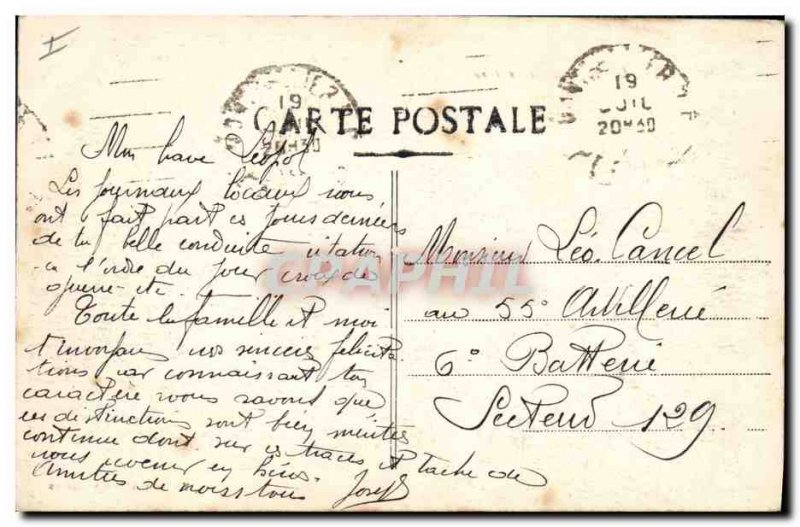 19
JUIL
20H30
19
JUIL
20H30
CARTE POSTALE
Mon brave Léopol
Les journaux locaux nous
ont fait part ces jours derniers
de ta belle conduite citation
a l'ordre du jour croix de
guerre etc.
Toute la famille et moi
t'envoyons nos sinceres félicita
tions car connaissant ton
caractère nous savons que
ces distinctions sont bien méritées
continue donc sur ces traces et tache de
nous revenir en héros.
Amitiés de nous tous Joseph
Monsieur Léo. Cancel
au 55e Artillerie
6e Batterie
Secteur 129
CPAPHIL